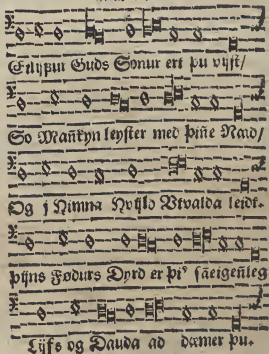 Eilijfur Guds Sonur ert þu vijst/
So Mañkyn leyster med þiñe Naad/
Og j Himna Hvijld Vtvalda leidt.
þijns Fødurs Dyrd er þi⁹ sãeigẽleg
Lijfs og Dauda ad dæmer þu.